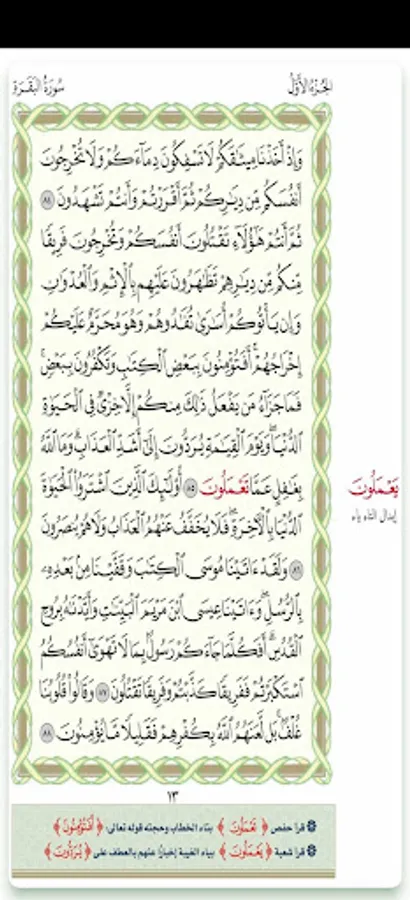 الجُزْءُ الأَوَّلُ
سُورَةُ البَقَرَةِ
وَإِذۡ أَخَذۡنَا مِيثَٰقَكُمۡ لَا تَسۡفِكُونَ دِمَآءَكُمۡ وَلَا تُخۡرِجُونَ
أَنفُسَكُم مِّن دِيَٰرِكُمۡ ثُمَّ أَقۡرَرۡتُمۡ وَأَنتُمۡ تَشۡهَدُونَ ٨٤
ثُمَّ أَنتُمۡ هَٰٓؤُلَآءِ تَقۡتُلُونَ أَنفُسَكُمۡ وَتُخۡرِجُونَ فَرِيقٗا
مِّنكُم مِّن دِيَٰرِهِمۡ تَظَٰهَرُونَ عَلَيۡهِم بِٱلۡإِثۡمِ وَٱلۡعُدۡوَٰنِ
وَإِن يَأۡتُوكُمۡ أُسَٰرَىٰ تُفَٰدُوهُمۡ وَهُوَ مُحَرَّمٌ عَلَيۡكُمۡ
إِخۡرَاجُهُمۡۚ أَفَتُؤۡمِنُونَ بِبَعۡضِ ٱلۡكِتَٰبِ وَتَكۡفُرُونَ بِبَعۡضٖۚ
فَمَا جَزَآءُ مَن يَفۡعَلُ ذَٰلِكَ مِنكُمۡ إِلَّا خِزۡيٞ فِي ٱلۡحَيَوٰةِ
ٱلدُّنۡيَاۖ وَيَوۡمَ ٱلۡقِيَٰمَةِ يُرَدُّونَ إِلَىٰٓ أَشَدِّ ٱلۡعَذَابِۗ وَمَا ٱللَّهُ
بِغَٰفِلٍ عَمَّا تَعۡمَلُونَ ٨٥ أُوْلَٰٓئِكَ ٱلَّذِينَ ٱشۡتَرَوُاْ ٱلۡحَيَوٰةَ
يَعۡمَلُونَ
إبدال التاء ياء
ٱلدُّنۡيَا بِٱلۡأٓخِرَةِۖ فَلَا يُخَفَّفُ عَنۡهُمُ ٱلۡعَذَابُ وَلَا هُمۡ يُنصَرُونَ
٨٦ وَلَقَدۡ ءَاتَيۡنَا مُوسَى ٱلۡكِتَٰبَ وَقَفَّيۡنَا مِنۢ بَعۡدِهِۦ
بِٱلرُّسُلِۖ وَءَاتَيۡنَا عِيسَى ٱبۡنَ مَرۡيَمَ ٱلۡبَيِّنَٰتِ وَأَيَّدۡنَٰهُ بِرُوحِ
ٱلۡقُدُسِۗ أَفَكُلَّمَا جَآءَكُمۡ رَسُولُۢ بِمَا لَا تَهۡوَىٰٓ أَنفُسُكُمُ
ٱسۡتَكۡبَرۡتُمۡ فَفَرِيقٗا كَذَّبۡتُمۡ وَفَرِيقٗا تَقۡتُلُونَ ٨٧ وَقَالُواْ قُلُوبُنَا
غُلۡفُۢۚ بَل لَّعَنَهُمُ ٱللَّهُ بِكُفۡرِهِمۡ فَقَلِيلٗا مَّا يُؤۡمِنُونَ ٨٨
١٣
قرأ حفص ﴿ تَعۡمَلُونَ ﴾ بتاء الخطاب وحجته قوله تعالى: ﴿ أَفَتُؤۡمِنُونَ ﴾
قرأ شعبة ﴿ يَعۡمَلُونَ ﴾ بياء الغيبة إخبارًا عنهم بالعطف على ﴿ يُرَدُّونَ ﴾